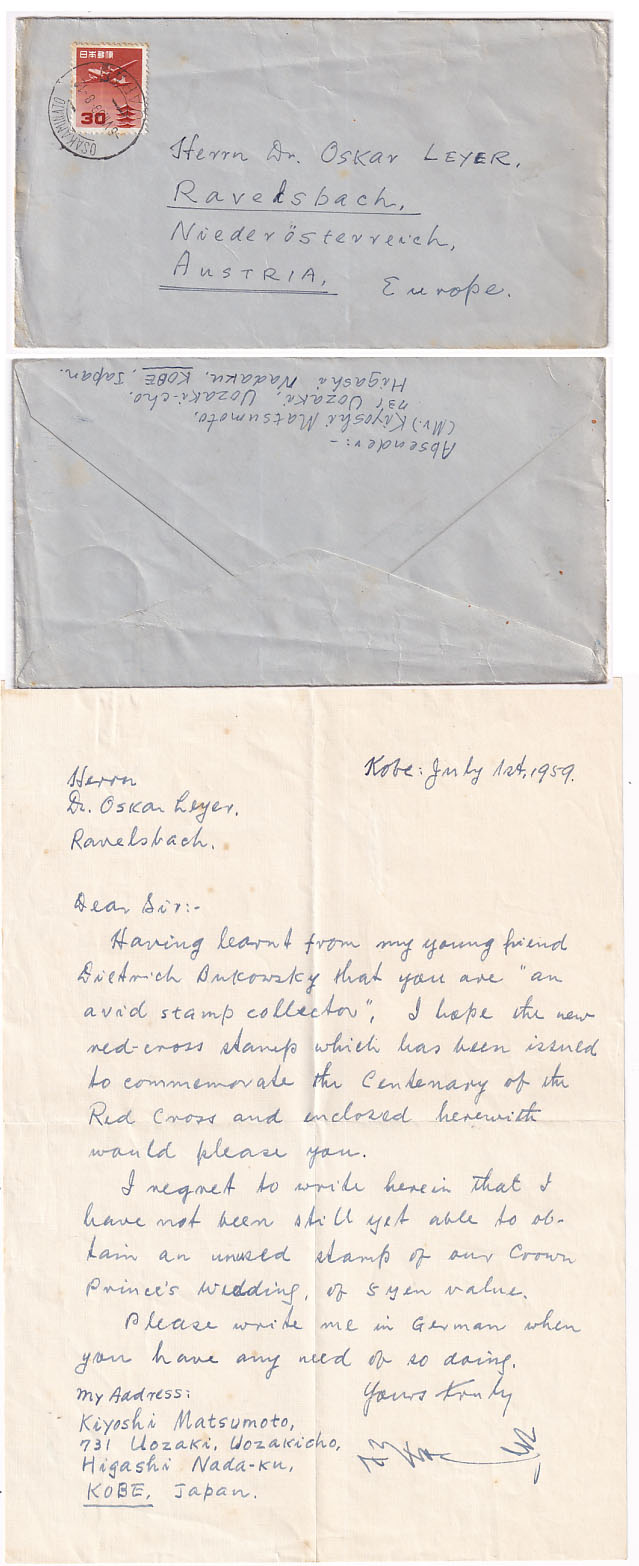 日本郵便
30
OSAKAMINATO
Herrn Dr. Oskar LEYER,
Ravelsbach,
Niederösterreich,
AUSTRIA,
Europe.
Absender:-
(Mr.) Kiyoshi Matsumoto,
731 Uozaki, Uozaki-cho,
Higashi Nadaku, KOBE, Japan.
Kobe: July 1st, 1959.
Herrn
Dr. Oskar Leyer,
Ravelsbach.
Dear Sir:-
Having learnt from my young friend
Dietrich Bukowsky that you are "an
avid stamp collector", I hope the new
red-cross stamp which has been issued
to commemorate the Centenary of the
Red Cross and enclosed herewith
would please you.
I regret to write herein that I
have not been still yet able to ob-
tain an unused stamp of our Crown
Prince's Wedding, of 5 yen value.
Please write me in German when
you have any need of so doing.
Yours truly
My Address:
Kiyoshi Matsumoto,
731 Uozaki, Uozakicho,
Higashi Nada-ku,
KOBE, Japan.